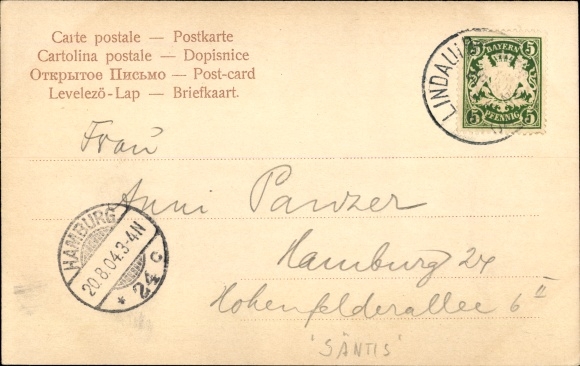 Carte postale — Postkarte
Cartolina postale — Dopisnice
Открытое Письмо — Post-card
Levelező-Lap — Briefkaart.
LINDAU
BAYERN
5 5
5 5
PFENNIG
Frau
Anni Panzer
Hamburg 24
Hohenfelderallee 6 II
HAMBURG
20.8.04.3-4N
* 24 c
'SÄNTIS'